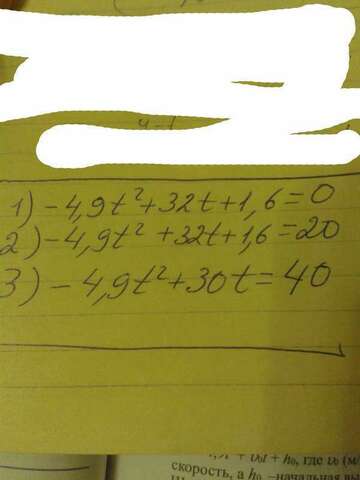 1) -4,9t²+32t+1,6=0
2) -4,9t²+32t+1,6=20
3) -4,9t²+30t=40
+ v₀t + h₀, где v₀ (м/
скорость, а h₀ -начальная вы